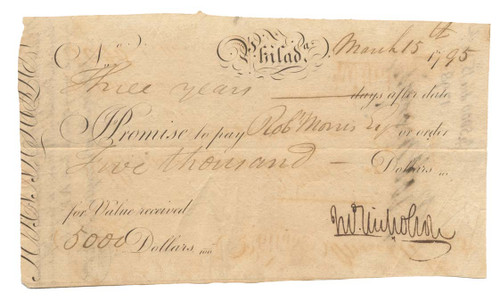 No. Philada. March 15th 1795
Three years days after date
I Promise to pay Robt Morris Esqr or order
Five thousand Dollars
for Value received
5000 Dollars
Jno. Nicholson